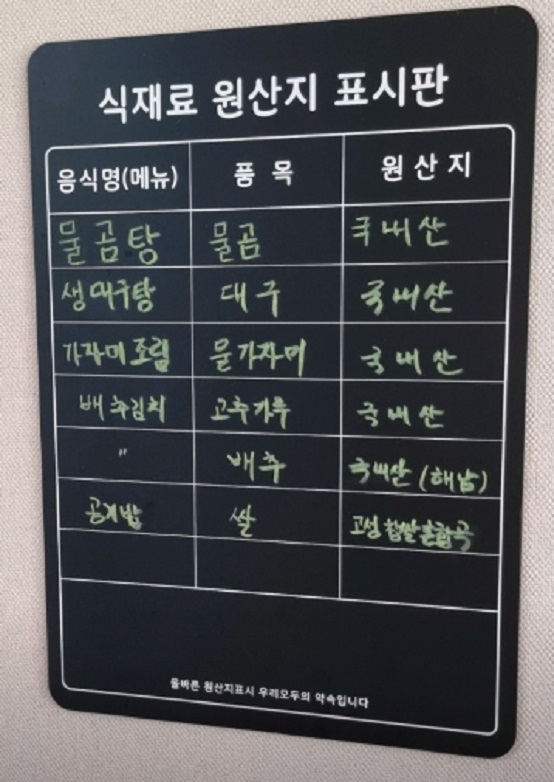 식재료 원산지 표시판
음식명(메뉴) 품목 원산지
물곰탕 물곰 국내산
생대구탕 대구 국내산
가자미조림 물가자미 국내산
배추김치 고추가루 국내산
〃 배추 국내산 (해남)
공기밥 쌀 고성 찹쌀혼합곡
올바른 원산지표시 우리모두의 약속입니다